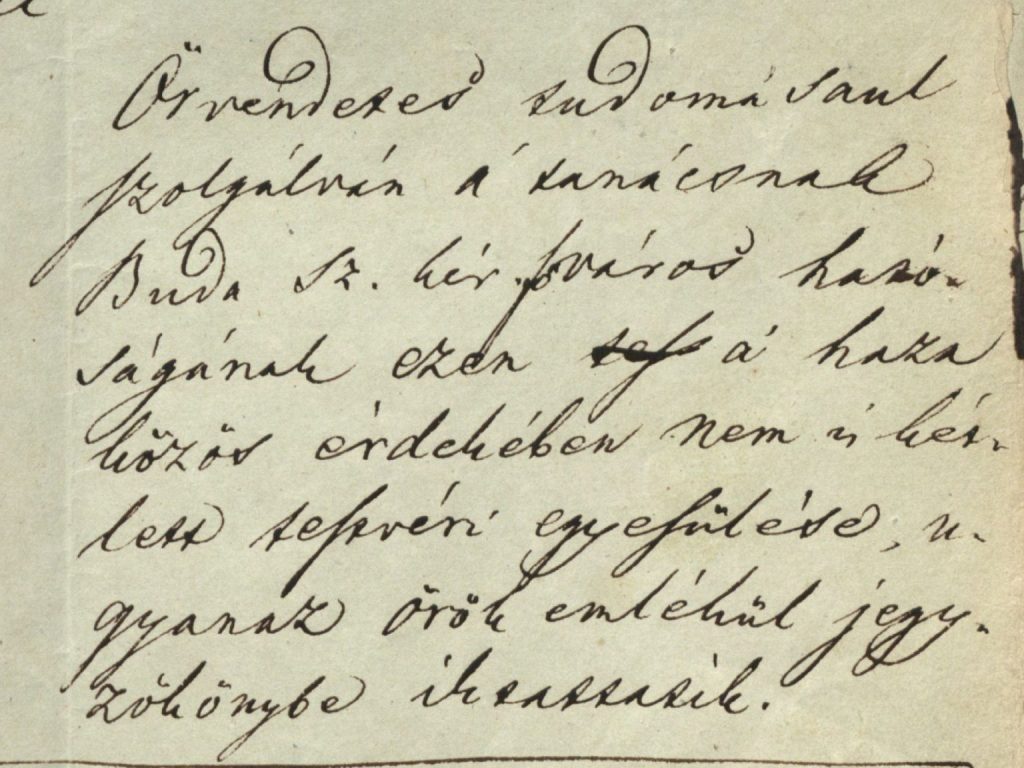 Örvendetes tudomásaul
szolgálván á tanácsnak
Buda sz. kir. főváros ható-
ságának ezen á haza
közös érdekében nem is két-
lett testvéri egyesülése, u-
gyanaz örök emlékül jegy-
zőkönybe iktattatik.